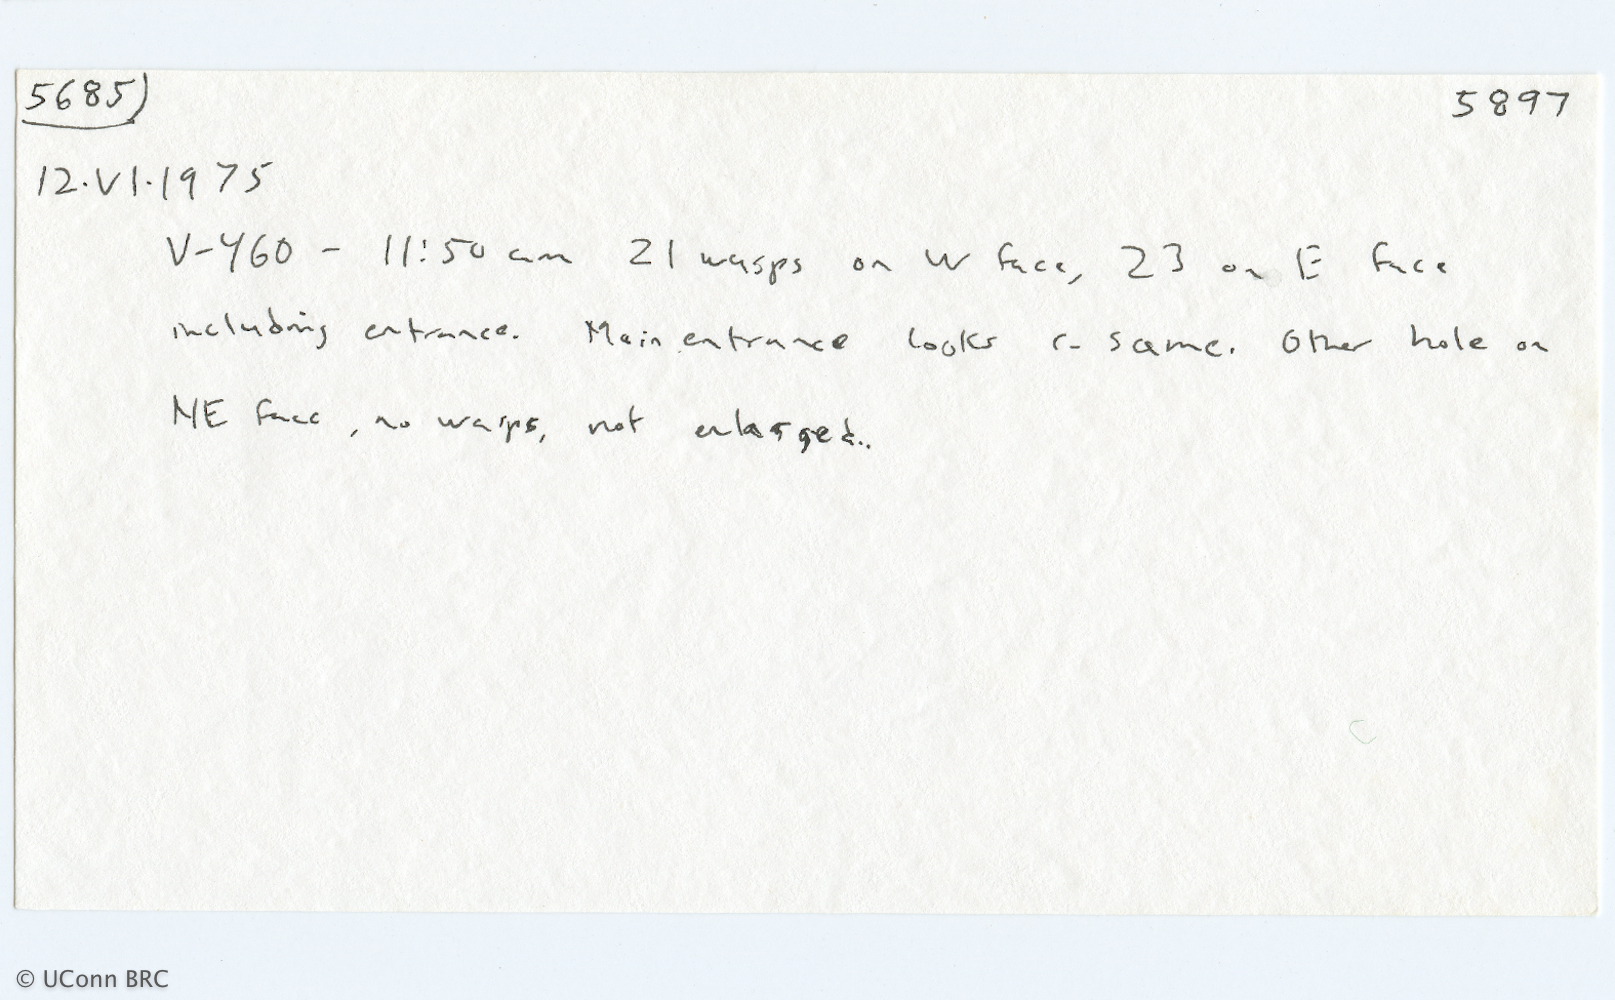 5685) 5897
12.VI.1975
V-460 - 11:50 am 21 wasps on W face, 23 on E face
including entrance. Main entrance looks c- same. Other hole on
NE face, no wasps, not enlarged..
© UConn BRC